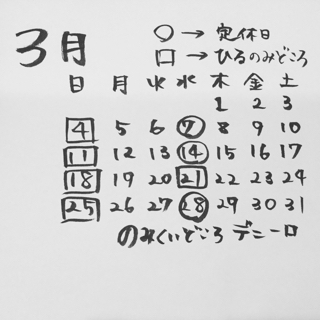 3月
○→定休日
□→ひるのみどころ
日 月 火 水 木 金 土
1 2 3
4 5 6 7 8 9 10
11 12 13 14 15 16 17
18 19 20 21 22 23 24
25 26 27 28 29 30 31
のみくいどころ デニーロ